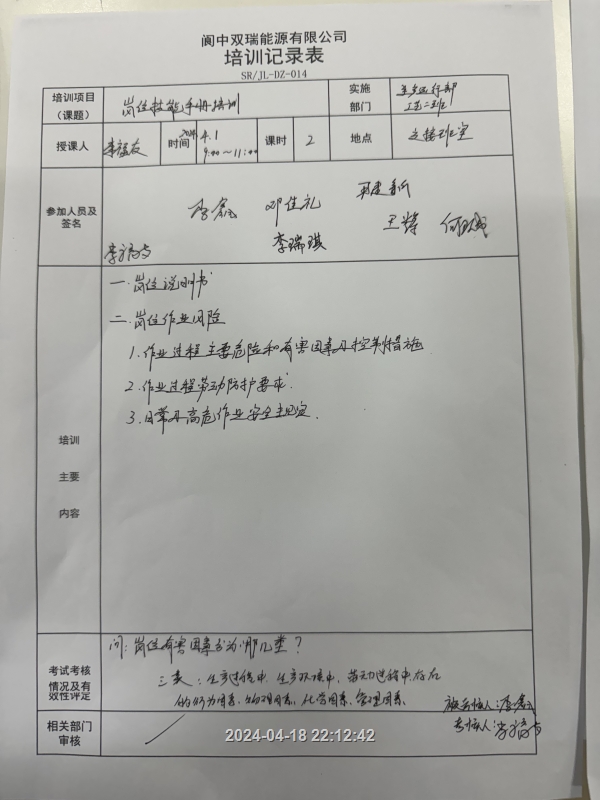 阆中双瑞能源有限公司
培训记录表
SR/JL-DZ-014
培训项目
（课题）
岗位技能手册培训
实施
部门
生产运行部
工艺二班
授课人
李福友
时间
2024.4.1
9:00～11:00
课时
2
地点
交接班室
参加人员及
签名
邓佳礼
李瑞琪
王辉
培训
主要
内容
一.岗位说明书
二.岗位作业风险
1.作业过程主要危险和有害因素及控制措施
2.作业过程劳动防护要求.
3.日常及高危作业安全规定.
考试考核
情况及有
效性评定
问：岗位有害因素分为哪几类？
三类：生产过程中、生产环境中、劳动过程中存在
的行为因素、物理因素、化学因素、管理因素.
被考核人：
考核人：
相关部门
审核
2024-04-18 22:12:42